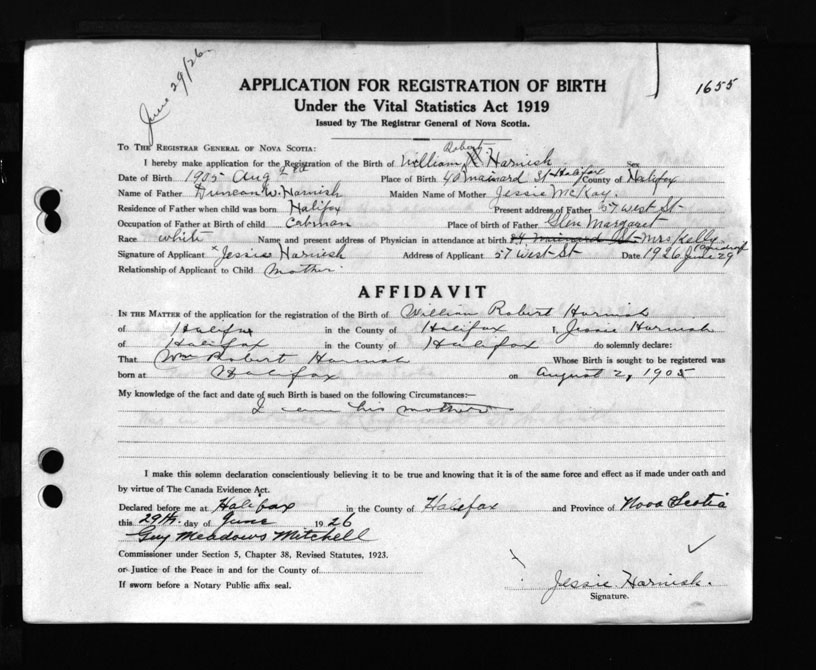 June 29/26
1655
APPLICATION FOR REGISTRATION OF BIRTH
Under the Vital Statistics Act 1919
Issued by The Registrar General of Nova Scotia.
TO THE REGISTRAR GENERAL OF NOVA SCOTIA:
Robert
I hereby make application for the Registration of the Birth of William R. Harnish Sex
Date of Birth 1905 Aug 2nd Place of Birth 40 Mainard St Halifax County of Halifax
Name of Father Duncan W. Harnish Maiden Name of Mother Jessie McKay.
Residence of Father when child was born Halifax Present address of Father 57 West St
Occupation of Father at Birth of child Cabman Place of birth of Father Glen Margaret
Race White Name and present address of Physician in attendance at birth Mainard St Mrs Kelly
Signature of Applicant x Jessie Harnish Address of Applicant 57 West St Date 1926 June 29
Relationship of Applicant to Child Mother
AFFIDAVIT
IN THE MATTER of the application for the registration of the Birth of William Robert Harnish
of Halifax in the County of Halifax I, Jessie Harnish
of Halifax in the County of Halifax do solemnly declare:
That Wm Robert Harnish Whose Birth is sought to be registered was
born at Halifax on August 2, 1905
My knowledge of the fact and date of such Birth is based on the following Circumstances:—
I am his mother
I make this solemn declaration conscientiously believing it to be true and knowing that it is of the same force and effect as if made under oath and
by virtue of The Canada Evidence Act.
Declared before me at Halifax in the County of Halifax and Province of Nova Scotia
this 29th. day of June 1926
Guy Meadows Mitchell
Commissioner under Section 5, Chapter 38, Revised Statutes, 1923.
or Justice of the Peace in and for the County of
If sworn before a Notary Public affix seal.
Jessie Harnish.
Signature.